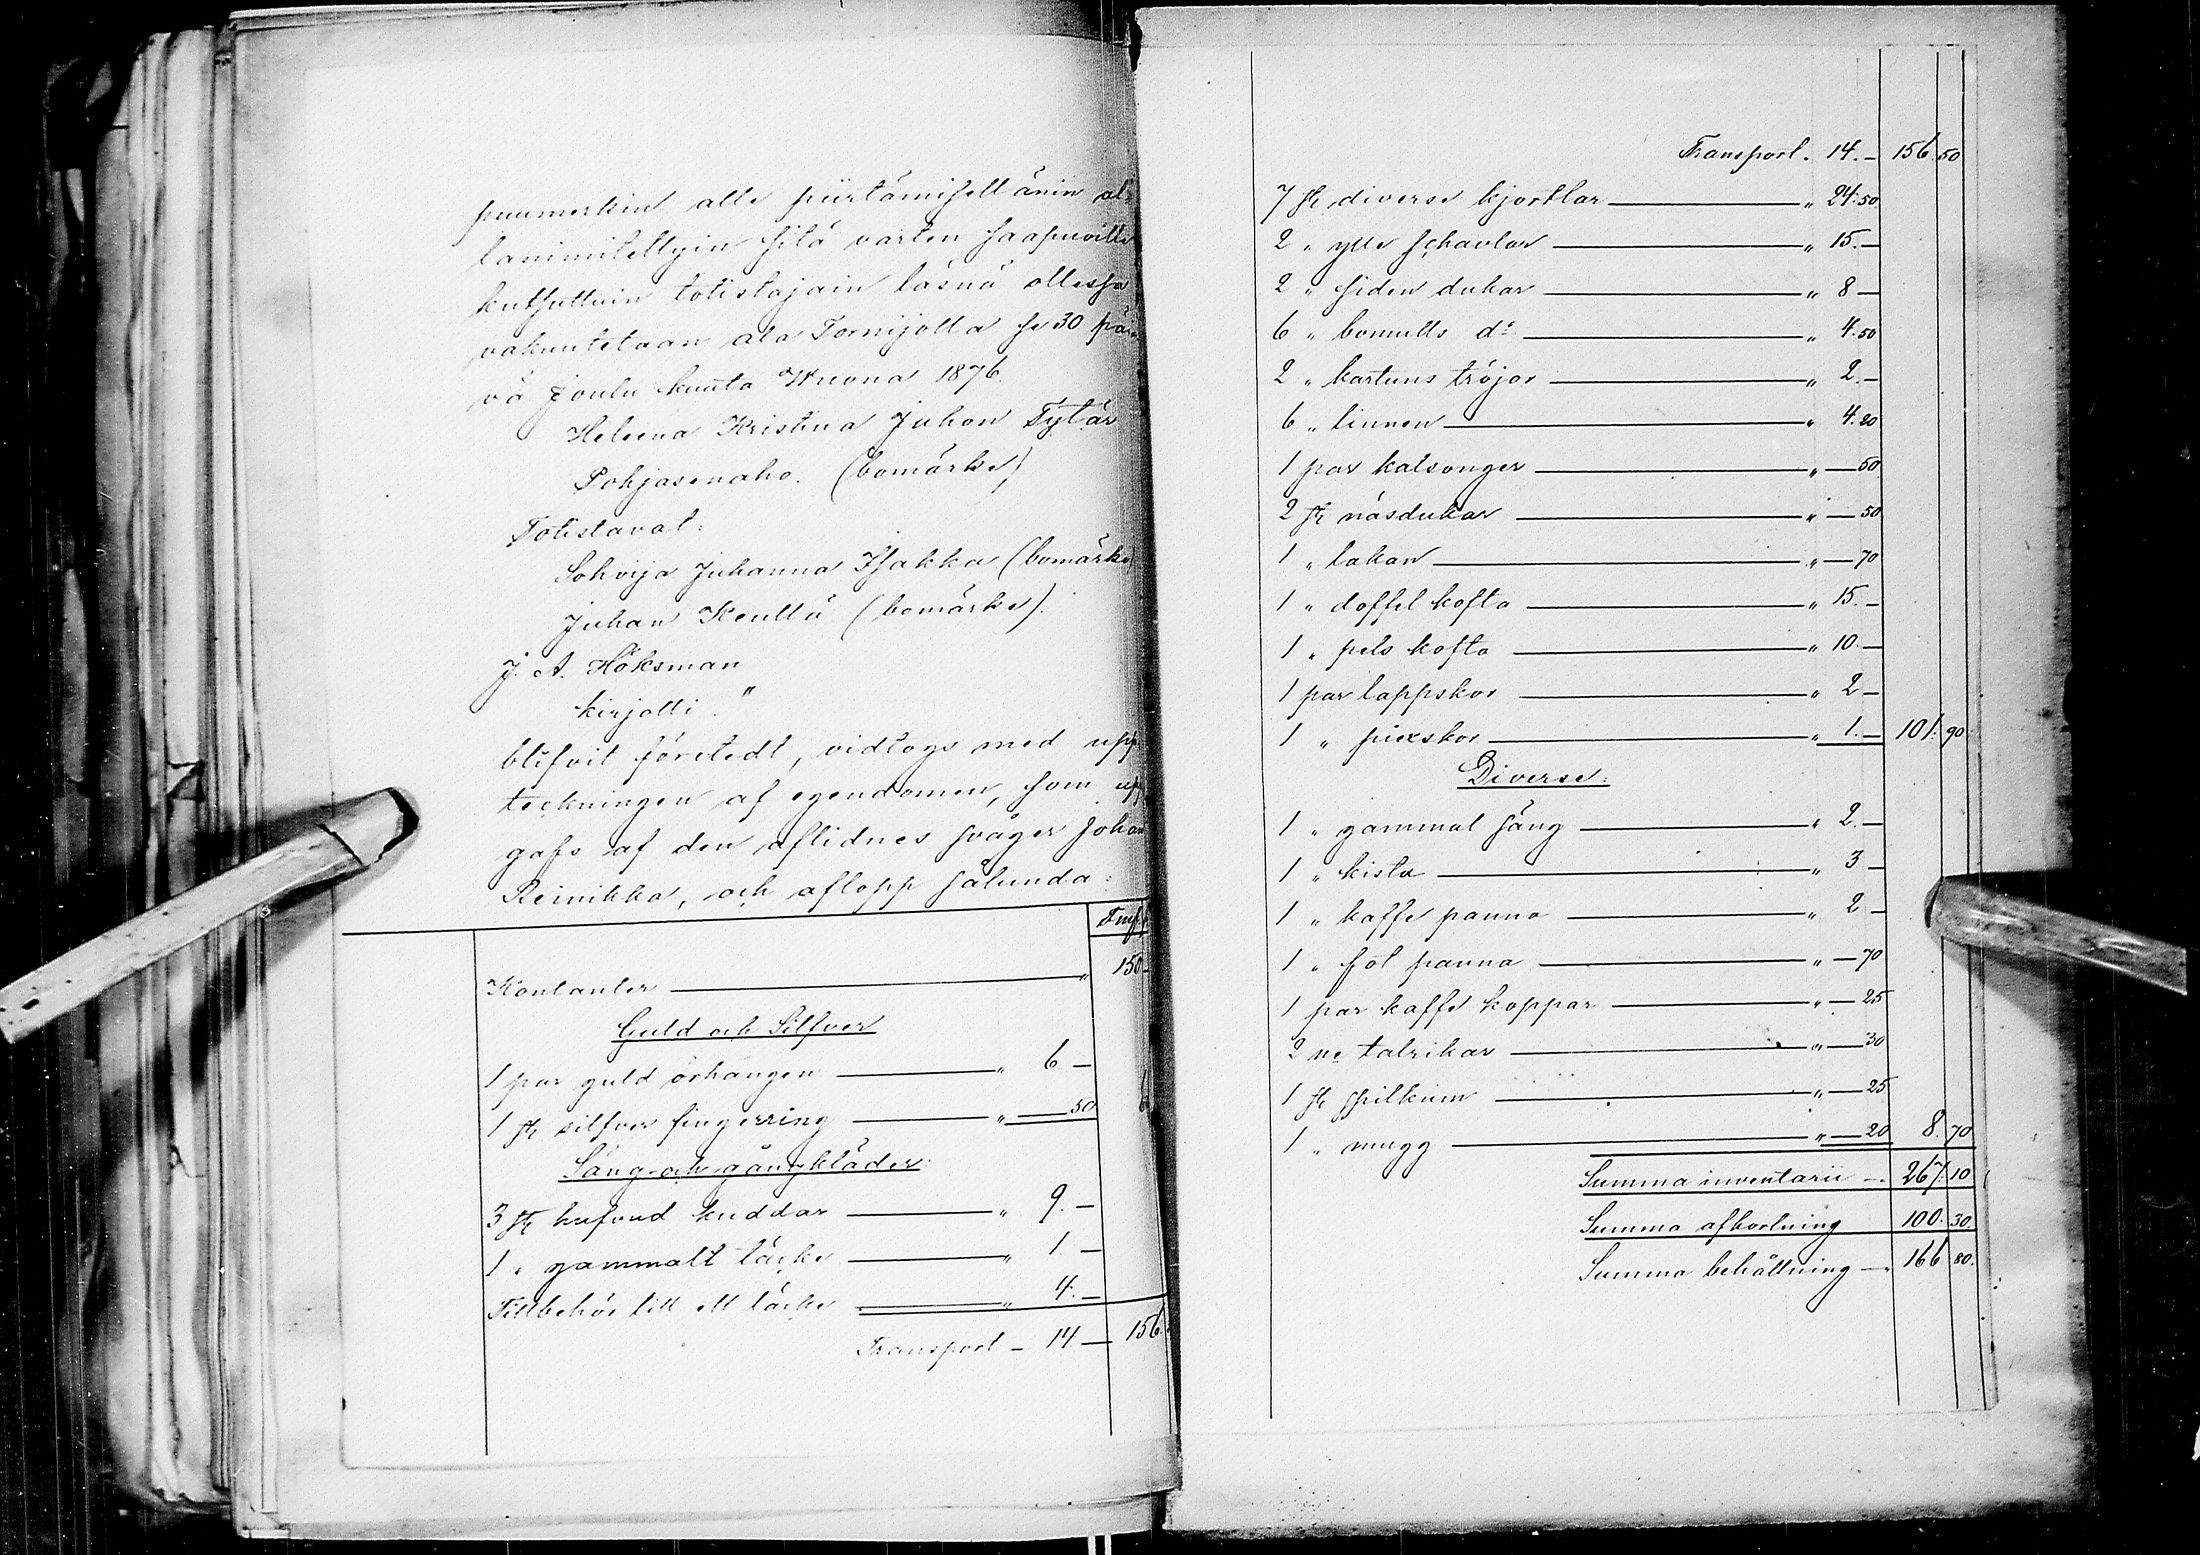 puumerkin alle piirtämisellänin al=
lanimitettyin sitä varten saapuville
kutsuttuin totistajain läsnä ollessa
vakuutetaan ala Tornijolla se 30 päi
vä Joulu kuuta Wuona 1876.
Heleena Kristina Juhon Tytär
Pohjasenaho. (bomärke)
Totistavat:
Sohvija Juhanna Isakka (bomärke
Juhan Kenttä (bomärke).
J. A. Höksman
kirjotti."
blifvit företedt, vidtogs med upp
teckningen af egendomen, som upp
gafs af den aflidnes svåger Johan
Reinikka, och aflopp sålunda:
Fmk
Kontanter — " 150
Guld och Silfver
1 par guld örhängen — " 6 —
1 st silfver fingerring — " — 50. 6
Säng och gångkläder:
3 st hufvud kuddar — " 9. —
1 " gammalt täcke — " 1 —
Tillbehör till ett täcke — " 4. —
Transport — 14 — 156.
Transport. 14. — 156 50
7 st diverse kjortlar — " 24.50
2 " ylle schavlar — " 15. —
2 " siden dukar — " 8 —
6 " bomulls d:o — " 4.50
2 " kartuns tröjor — " 2. —
6 " linnen — " 4.20
1 par kalsonger — " — 50
2 st näsdukar — " — 50
1 " lakan — " — 70
1 " doffel kofta — " 15. —
1 " pels kofta — " 10. —
1 par lappskor — " 2 —
1 " piexskor — " 1. — 101. 90
Diverse:
1 " gammal säng — " 2. —
1 " kista — " 3 —
1 " kaffe panna — " 2 —
1 " sot panna — " — 70
1 par kaffe koppar — " — 25
2 ne talrikar — " — 30
1 st spilkum — " — 25
1 " mugg — " — 20 8. 70
Summa inventarii — 267. 10
Summa afkortning 100. 30.
Summa behållning — 166 80.